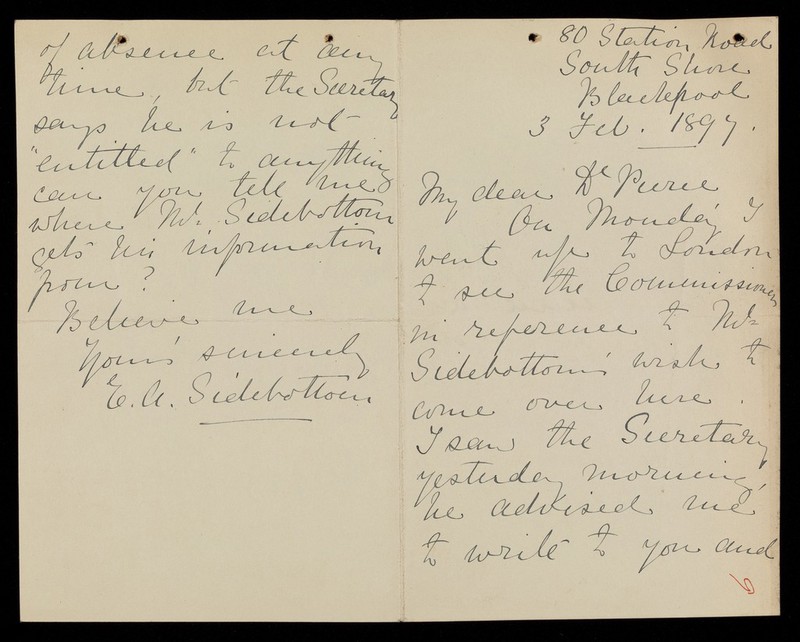 80 Station Road
South Shore
Blackpool
3 Feb. 1897.
My dear Dr Pierce
On Monday I
went up to London
to see the Commissioners
in reference to Mr
Sidebottom's wish to
come over here.
I saw the Secretary
yesterday morning,
he advised me
to write to you and
of absence at any
time, but the Secretary
says he is not
"entitled" to anything
can you tell me
where Mr Sidebottom
gets his information
from?
Believe me
Yours sincerely
E. A. Sidebottom